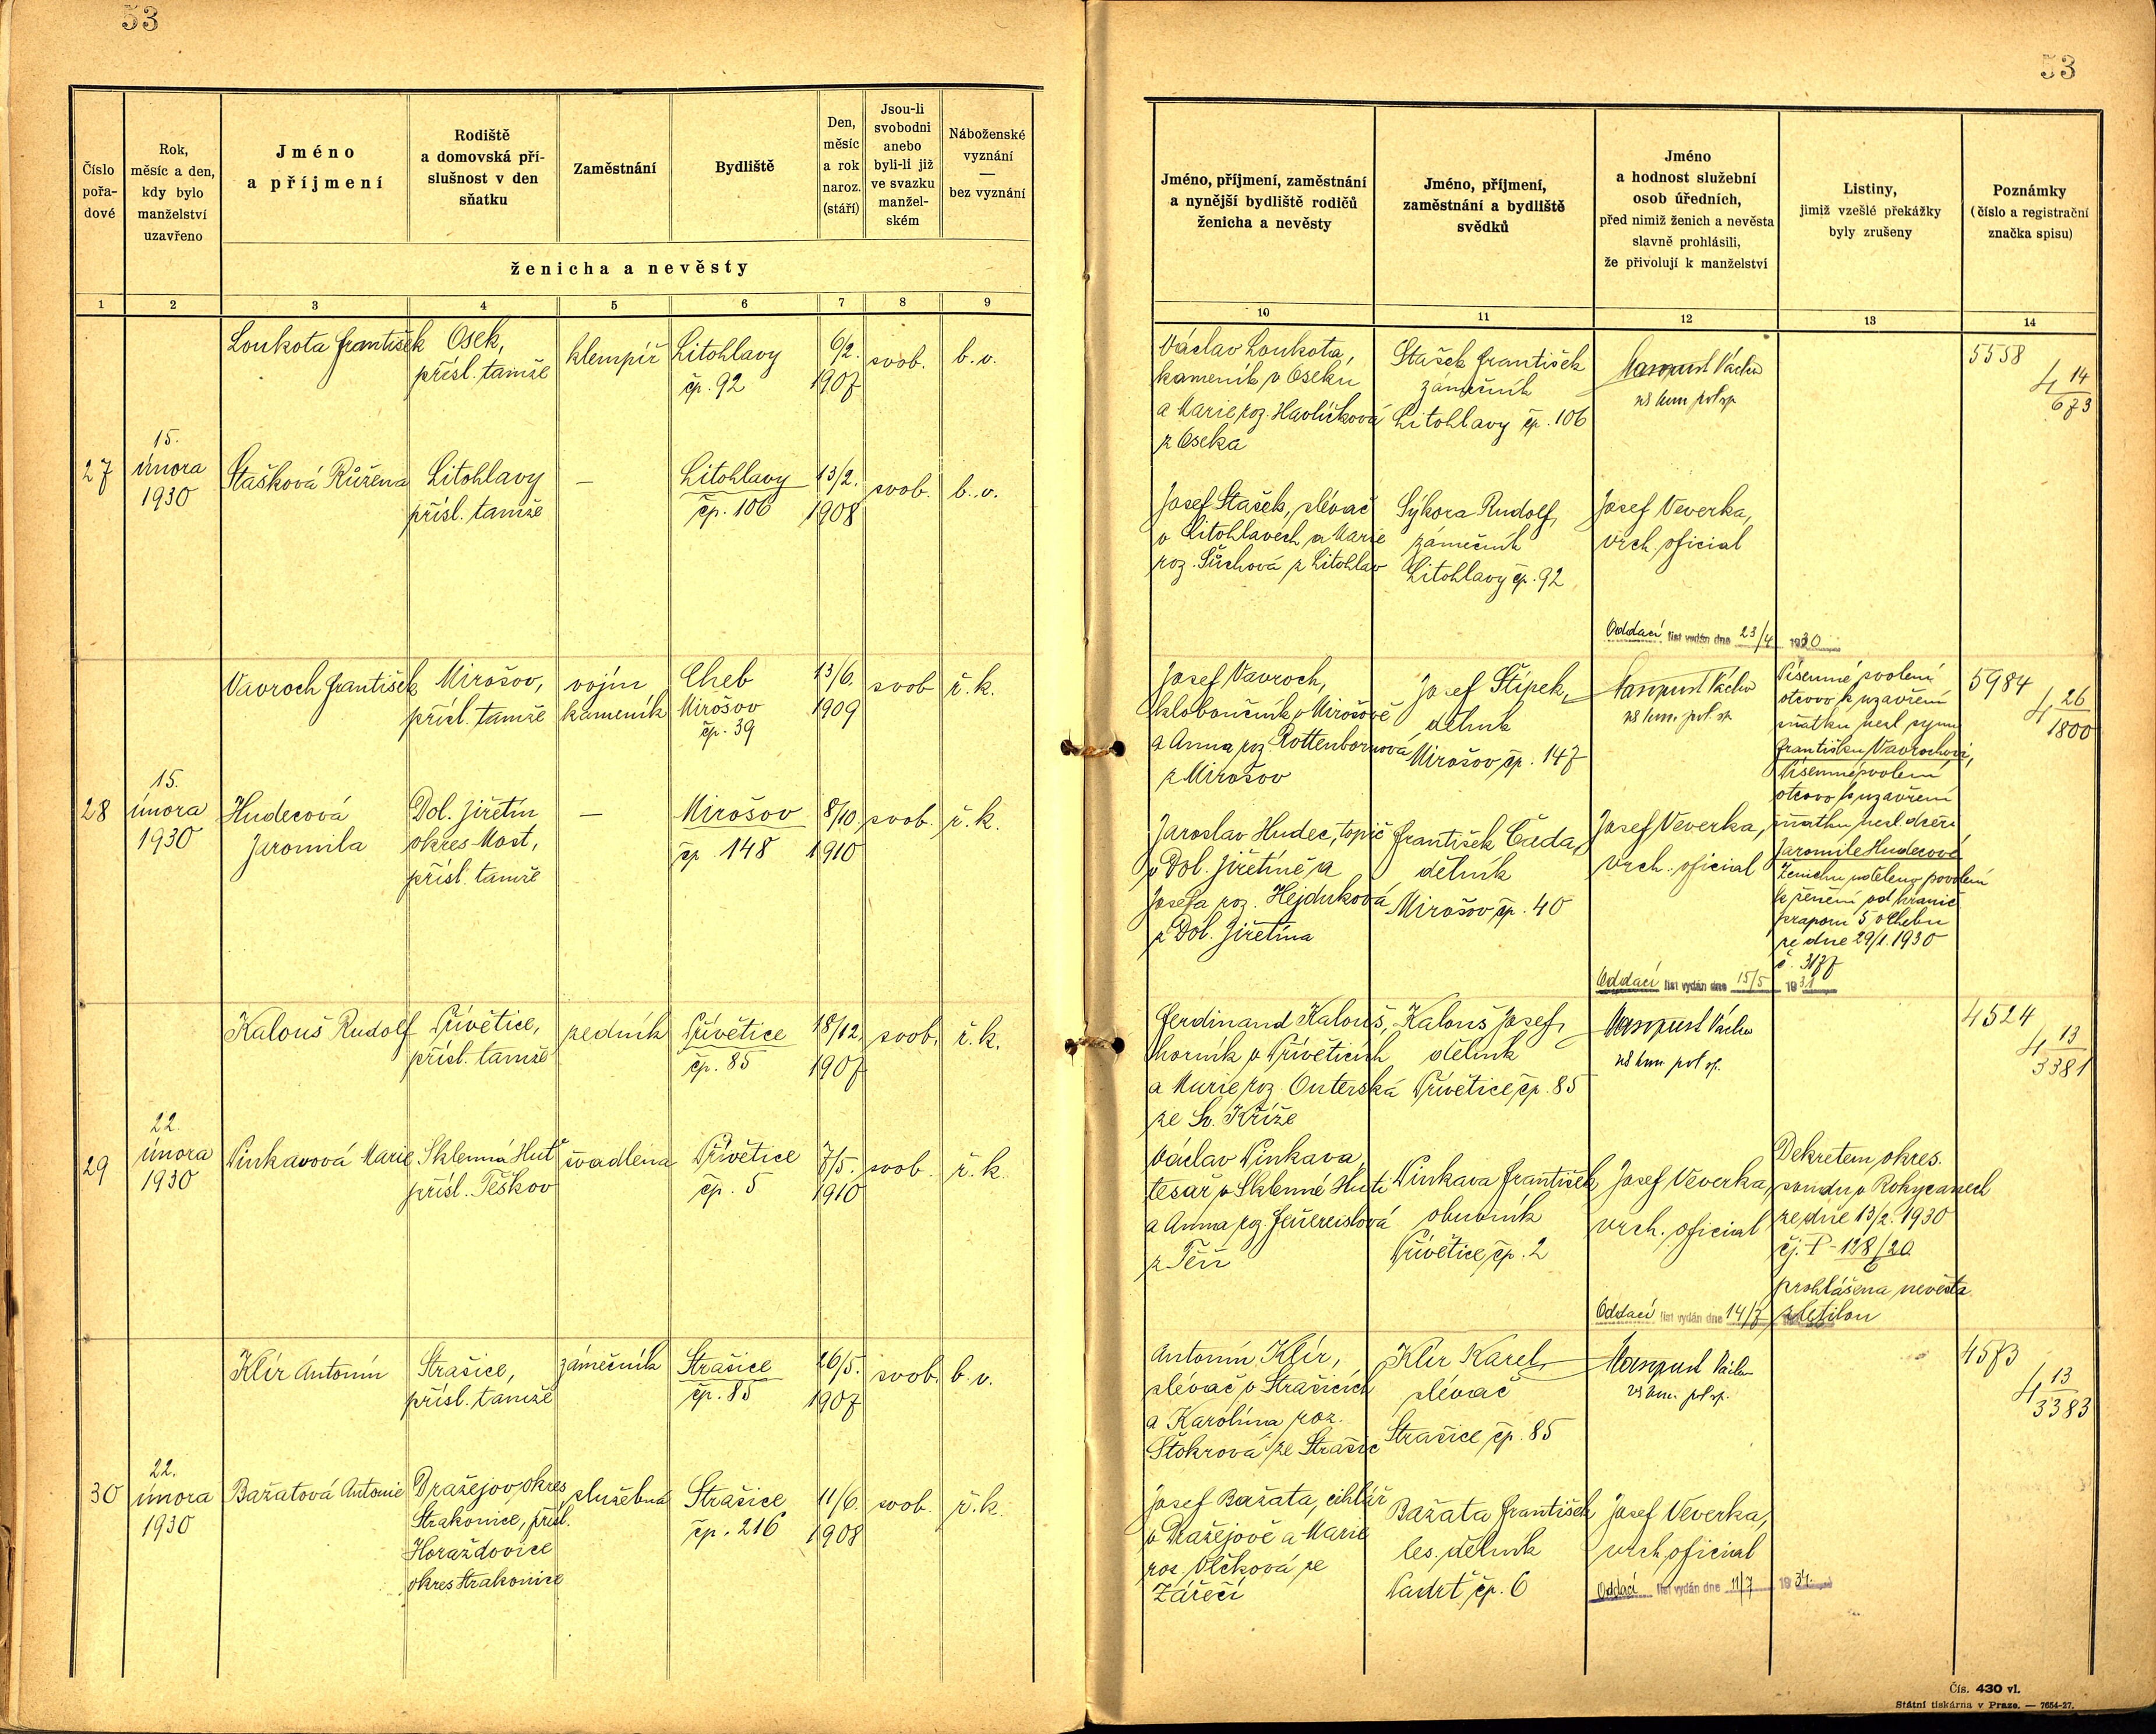 53
53
Číslo pořa-dové
Rok, měsíc a den, kdy bylo manželství uzavřeno
Jméno a příjmení
Rodiště a domovská pří-slušnost v den sňatku
Zaměstnání
Bydliště
Den, měsíc a rok naroz. (stáří)
Jsou-li svobodni anebo byli-li již ve svazku manžel-ském
Náboženské vyznání — bez vyznání
ženicha a nevěsty
1 2 3 4 5 6 7 8 9
Jméno, příjmení, zaměstnání a nynější bydliště rodičů ženicha a nevěsty
Jméno, příjmení, zaměstnání a bydliště svědků
Jméno a hodnost služební osob úředních, před nimiž ženich a nevěsta slavně prohlásili, že přivolují k manželství
Listiny, jimiž vzešlé překážky byly zrušeny
Poznámky (číslo a registrační značka spisu)
10 11 12 13 14
27
15.
února
1930
Loukota František
Osek,
přísl. tamže
klempíř
Litohlavy
čp. 92
6/2.
1907
svob.
b. v.
Stašková Růžena
Litohlavy
přísl. tamže
—
Litohlavy
čp. 106
13/2.
1908
svob.
b. v.
Václav Loukota,
kameník v Oseku
a Marie roz. Havlíčková
z Oseka
Stašek František
zámečník
Litohlavy čp. 106
Masopust Václav
5558
4 14
673
Josef Stašek, slévač
v Litohlavech a Marie
roz. Šůchová z Litohlav
Sýkora Rudolf,
zámečník
Litohlavy čp. 92
Josef Veverka,
vrch. oficial
Oddací list vydán dne 23/4 1930
28
15.
února
1930
Vavroch František
Mirošov,
přísl. tamže
vojín
kameník
Cheb
Mirošov
čp. 39
13/6.
1909
svob
ř. k.
Hudecová
Jaromila
Dol. Jiřetín
okres Most,
přísl. tamže
—
Mirošov
čp. 148
8/10.
1910
svob.
ř. k.
Josef Vavroch,
kloboučník v Mirošově
a Anna roz. Rottenbornová
z Mirošov
Josef Štípek,
dělník
Mirošov čp. 147
Masopust Václav
Písemné svolení
otcovo k uzavření
sňatku nezl. synu
Františku Vavrochovi,
Písemné svolení
otcovo k uzavření
sňatku nezl. dceři
Jaromile Hudecové
Ženichu uděleno povolení
k ženění od hranič.
praporu 5 v Chebu
ze dne 29/1. 1930
č. 3177
5984
4 26
1800
Jaroslav Hudec, topič
v Dol. Jiřetíně a
Josefa roz. Hejduková
z Dol. Jiřetína
František Čada,
dělník
Mirošov čp. 40
Josef Veverka,
vrch. oficial
Oddací list vydán dne 15/5 1931
29
22.
února
1930
Kalouš Rudolf
Přívětice,
přísl. tamže
zedník
Přívětice
čp. 85
18/12.
1907
svob.
ř. k.
Pinkavová Marie
Sklenná Huť
přísl. Těškov
švadlena
Přívětice
čp. 5
7/5.
1910
svob.
ř. k.
Ferdinand Kalouš,
horník v Přívěticích
a Marie roz. Outerská
ze Sv. Kříže
Kalouš Josef,
dělník
Přívětice čp. 85
Masopust Václav
4524
4 13
3381
Václav Pinkava,
tesař v Sklenné Huti
a Anna roz.
Pinkava František
obuvník
Přívětice čp. 2
Josef Veverka,
vrch. oficial
Dekretem okres.
soudu v Rokycanech
ze dne 13/2. 1930
prohlášena nevěsta
zletilou
Oddací list vydán dne 14/7
30
22.
února
1930
Klír Antonín
Strašice,
přísl. tamže
zámečník
Strašice
čp. 85
26/5.
1907
svob.
b. v.
Bažatová Antonie
Dražejov, okres
Strakonice, přísl.
Horažďovice
okres Strakonice
služebná
Strašice
čp. 216
11/6.
1908
svob.
ř. k.
Antonín Klír,
slévač v Strašicích
a Karolina roz.
Štokrová ze Strašic
Klír Karel,
slévač
Strašice čp. 85
Masopust Václav
4573
4 13
3383
Josef Bažata, cihlář
v Dražejově a Marie
roz. Vlčková ze
Zářečí
Bažata František
les. dělník
Padrť čp. 6
Josef Veverka,
vrch. oficial
Oddací list vydán dne 11/7 1934.
Čís. 430 vl.
Státní tiskárna v Praze. — 7654-27.